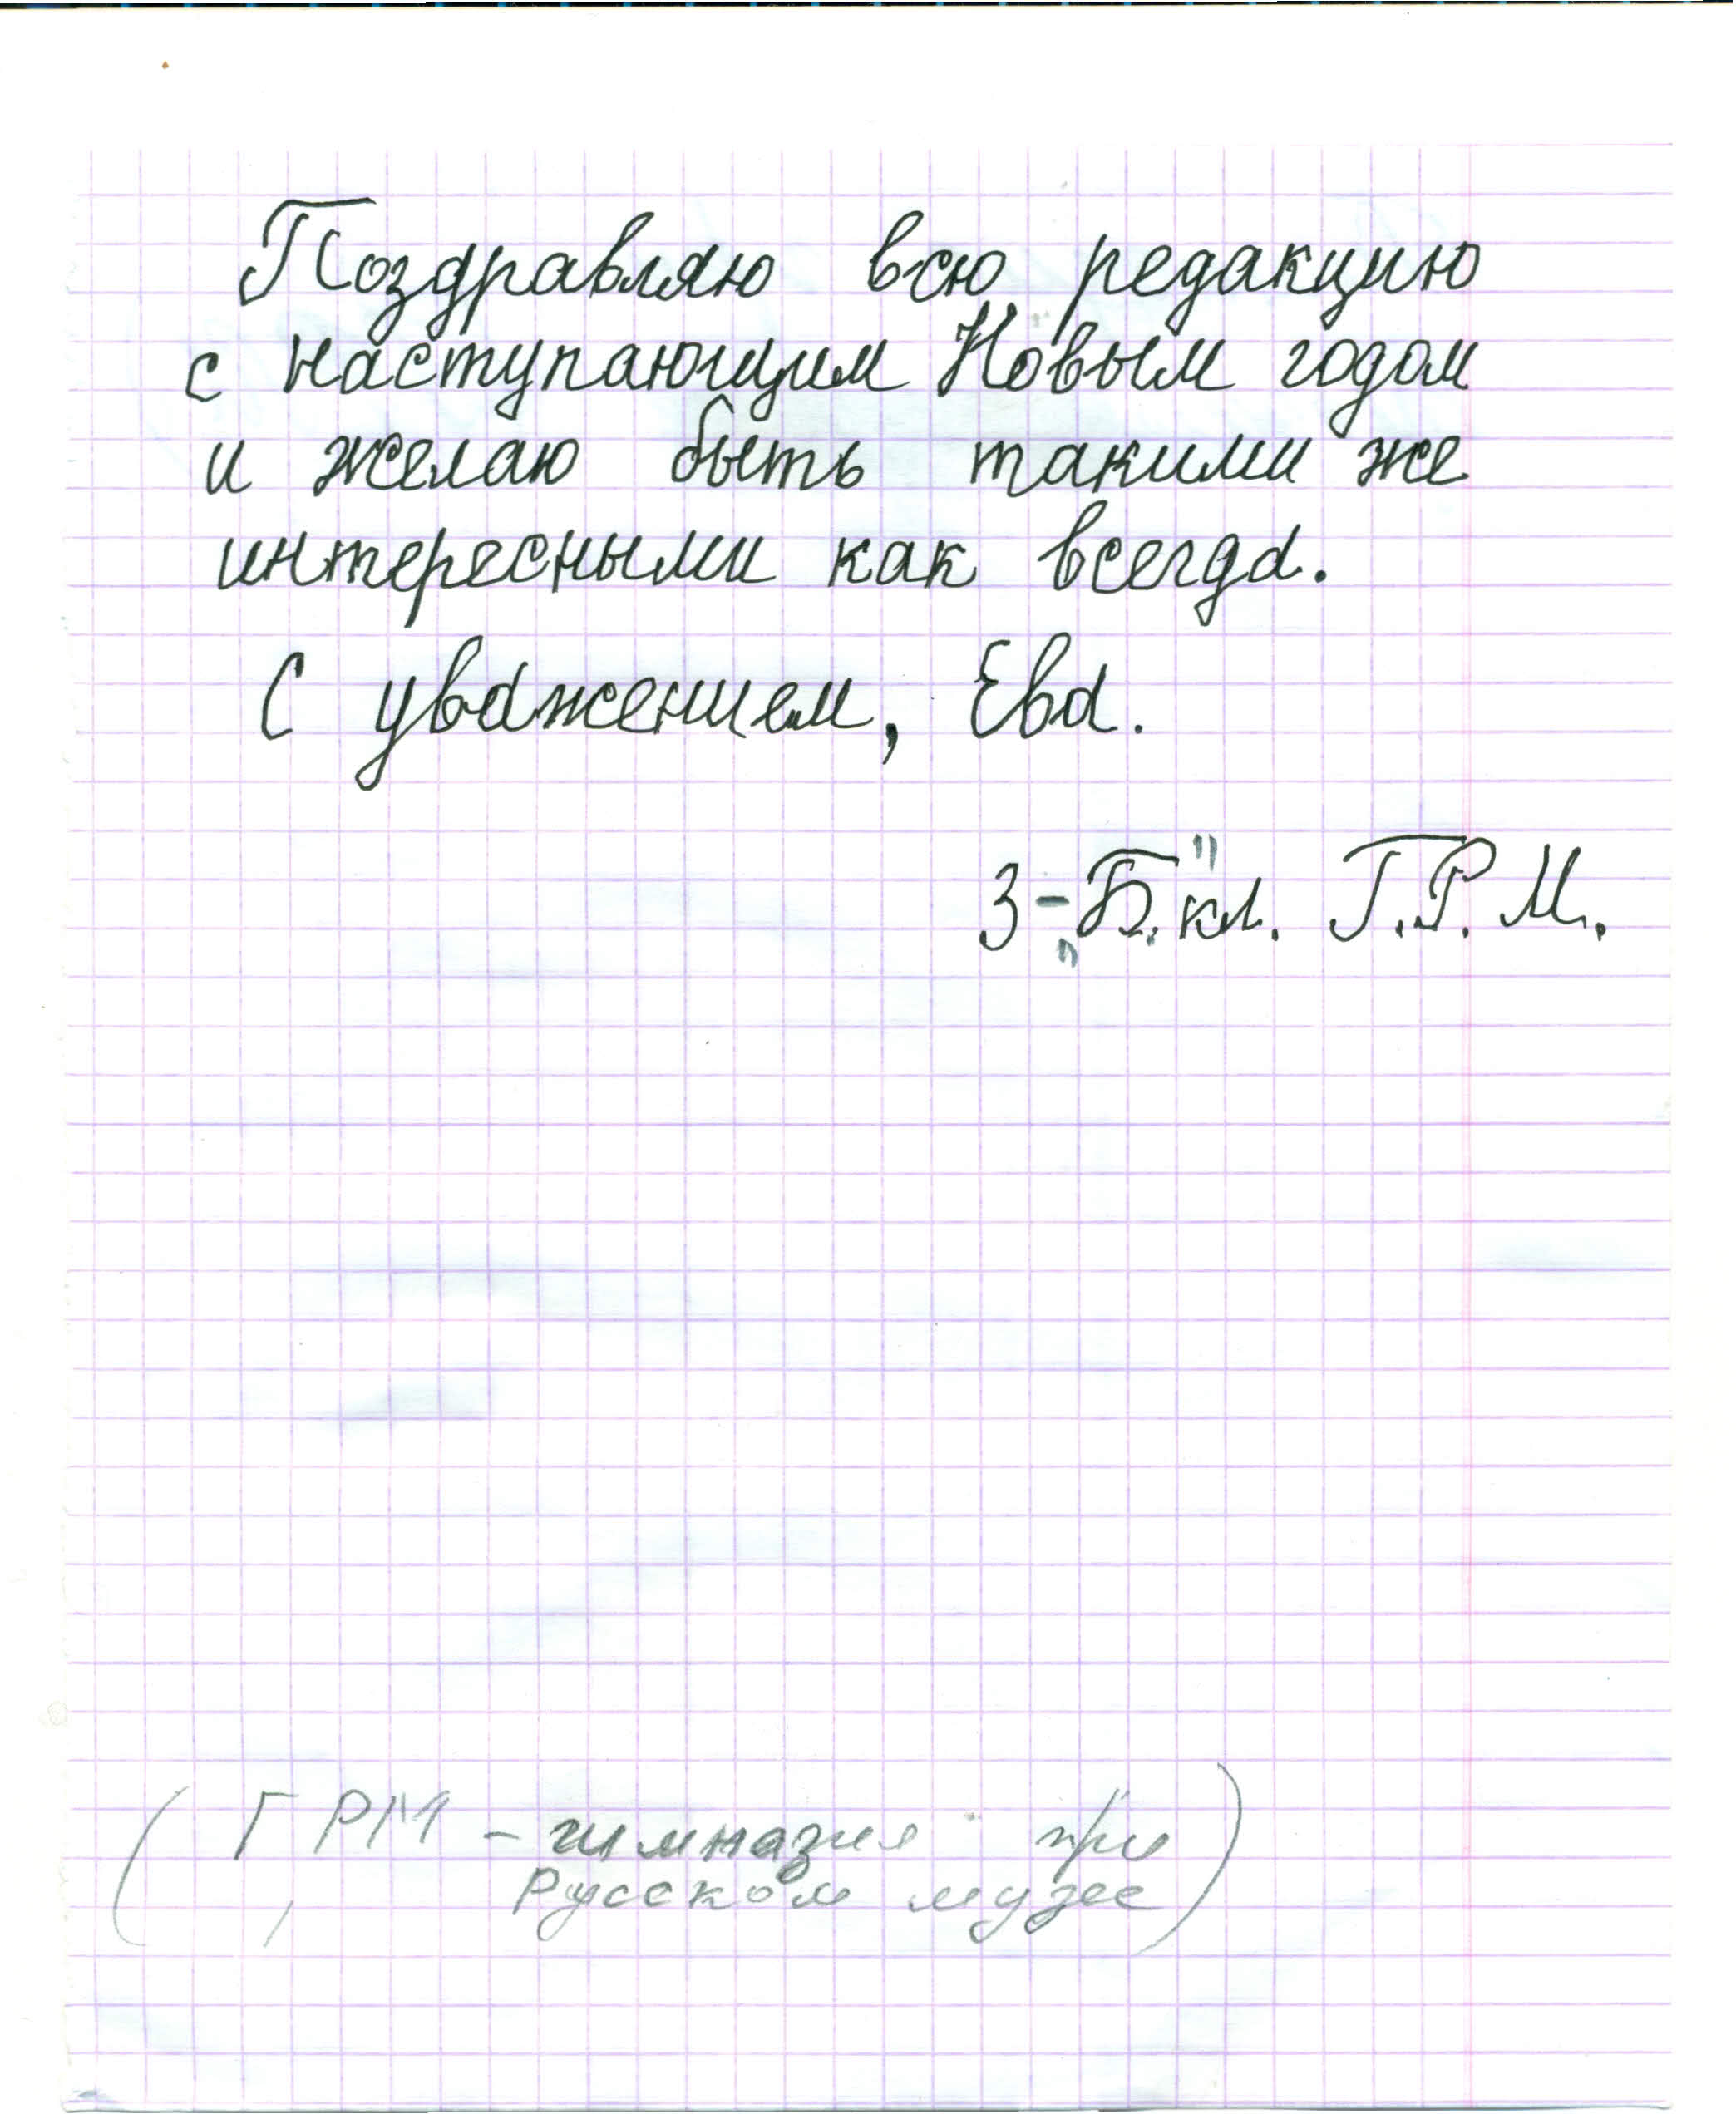 Поздравляю всю редакцию
с наступающим Новым годом
и желаю быть такими же
интересными как всегда.
С уважением, Ева.
3-„Б." кл. Г.Р.М.
(ГРМ - гимназия при
Русском музее)